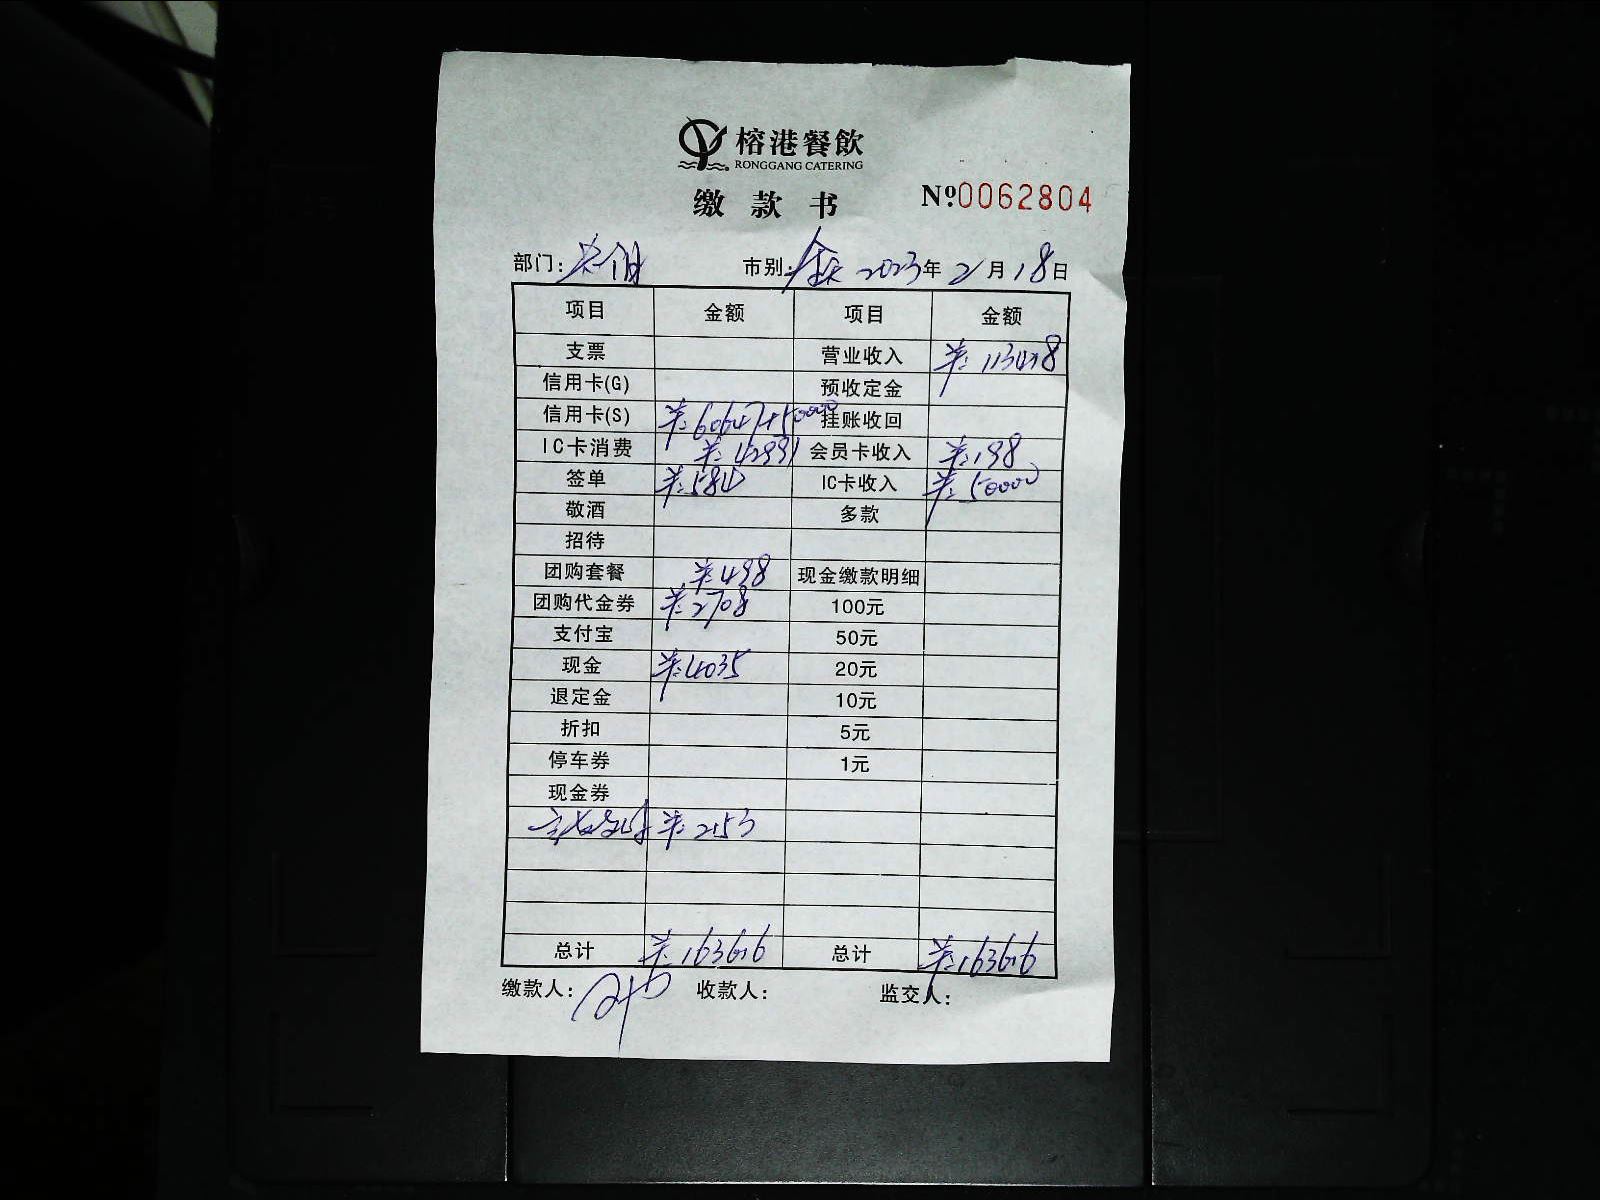 榕港餐飲
RONGGANG CATERING
缴款书
№0062804
部门: 市别: 全天 2023年 2月 18日
项目 金额 项目 金额
支票 营业收入 ¥:113418
信用卡(G) 预收定金
信用卡(S) ¥:60647+50000 挂账收回
IC卡消费 ¥:42991 会员卡收入 ¥:198
签单 ¥:584 IC卡收入 ¥:50000
敬酒 多款
招待
团购套餐 ¥:498 现金缴款明细
团购代金券 ¥:2708 100元
支付宝 50元
现金 ¥:4035 20元
退定金 10元
折扣 5元
停车券 1元
现金券
¥:2153
总计 ¥:163616 总计 ¥:163616
缴款人: 收款人: 监交人: